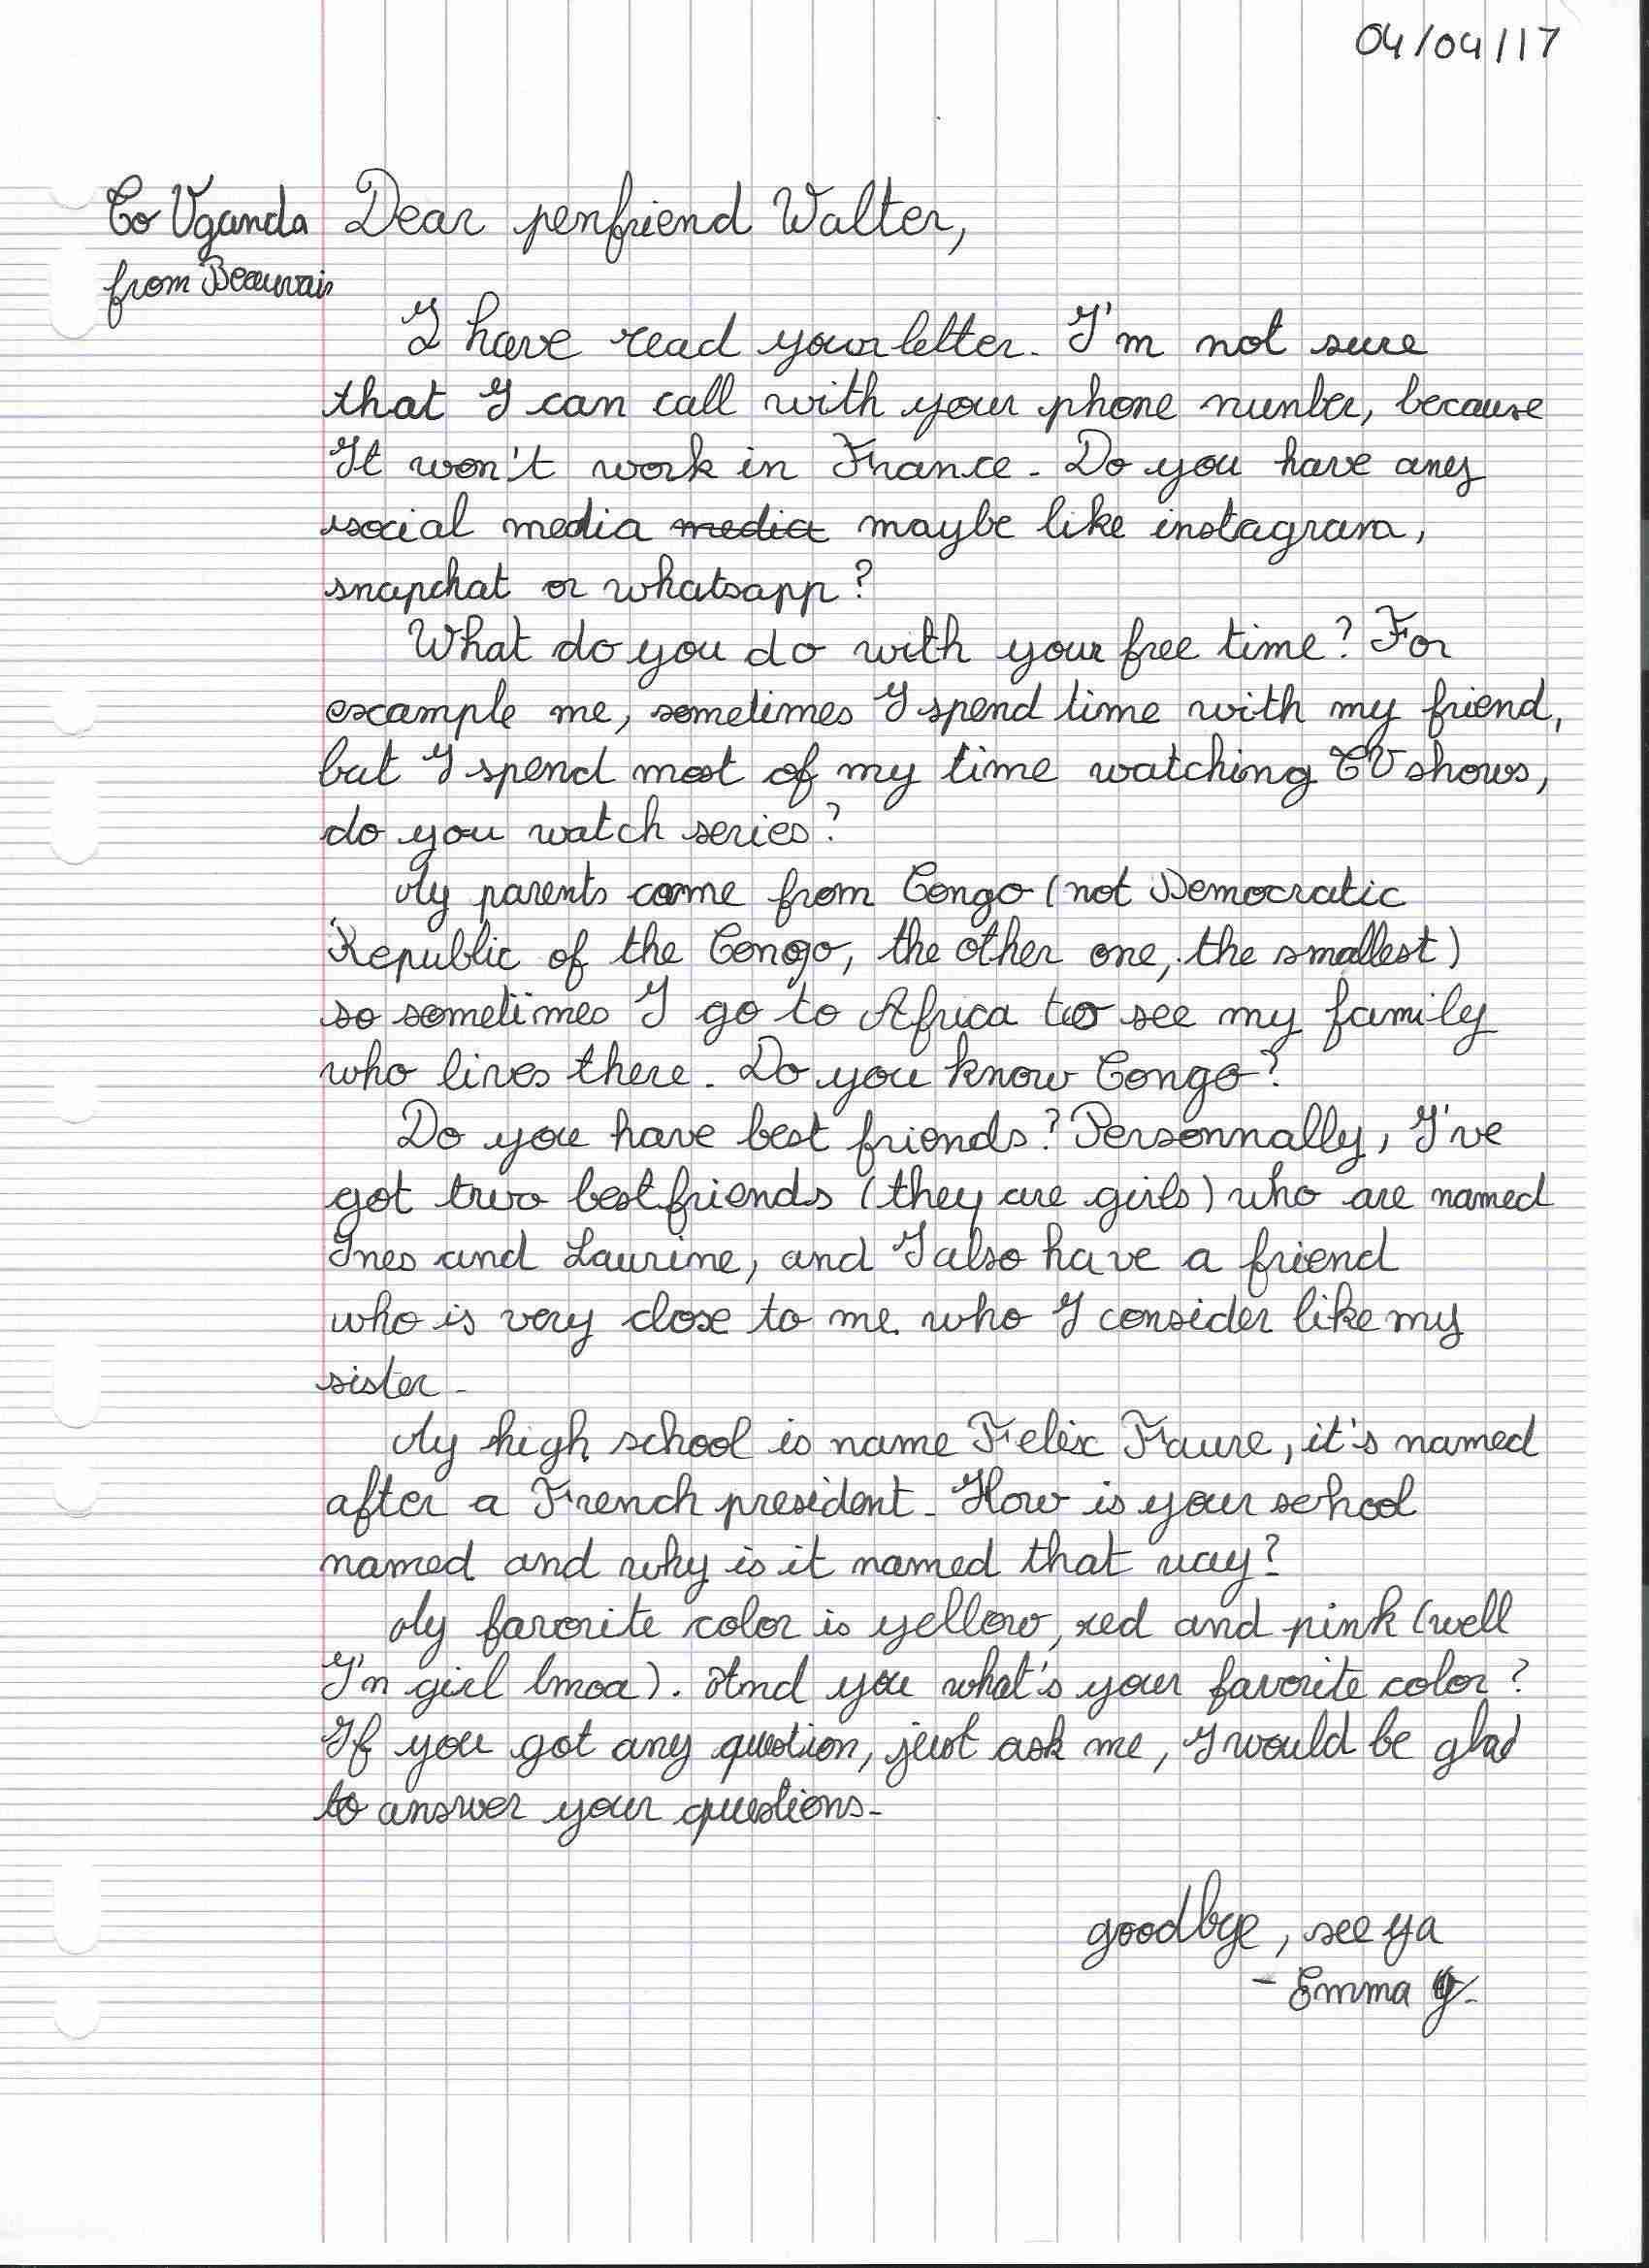 04/04/17
To Uganda
from Beauvais
Dear penfriend Walter,
I have read your letter. I'm not sure
that I can call with your phone number, because
It won't work in France. Do you have any
social media media maybe like instagram,
snapchat or whatsapp?
What do you do with your free time? For
example me, sometimes I spend time with my friend,
but I spend most of my time watching TV shows,
do you watch series?
My parents come from Congo (not Democratic
Republic of the Congo, the other one, the smallest)
so sometimes I go to Africa to see my family
who lives there. Do you know Congo?
Do you have best friends? Personnally, I've
got two best friends (they are girls) who are named
Ines and Laurine, and I also have a friend
who is very close to me who I consider like my
sister.
My high school is name Felix Faure, it's named
after a French president. How is your school
named and why is it named that way?
My favorite color is yellow, red and pink (well
I'm girl lmoa). And you what's your favorite color?
If you got any question, just ask me, I would be glad
to answer your questions.
goodbye, see ya
- Emma